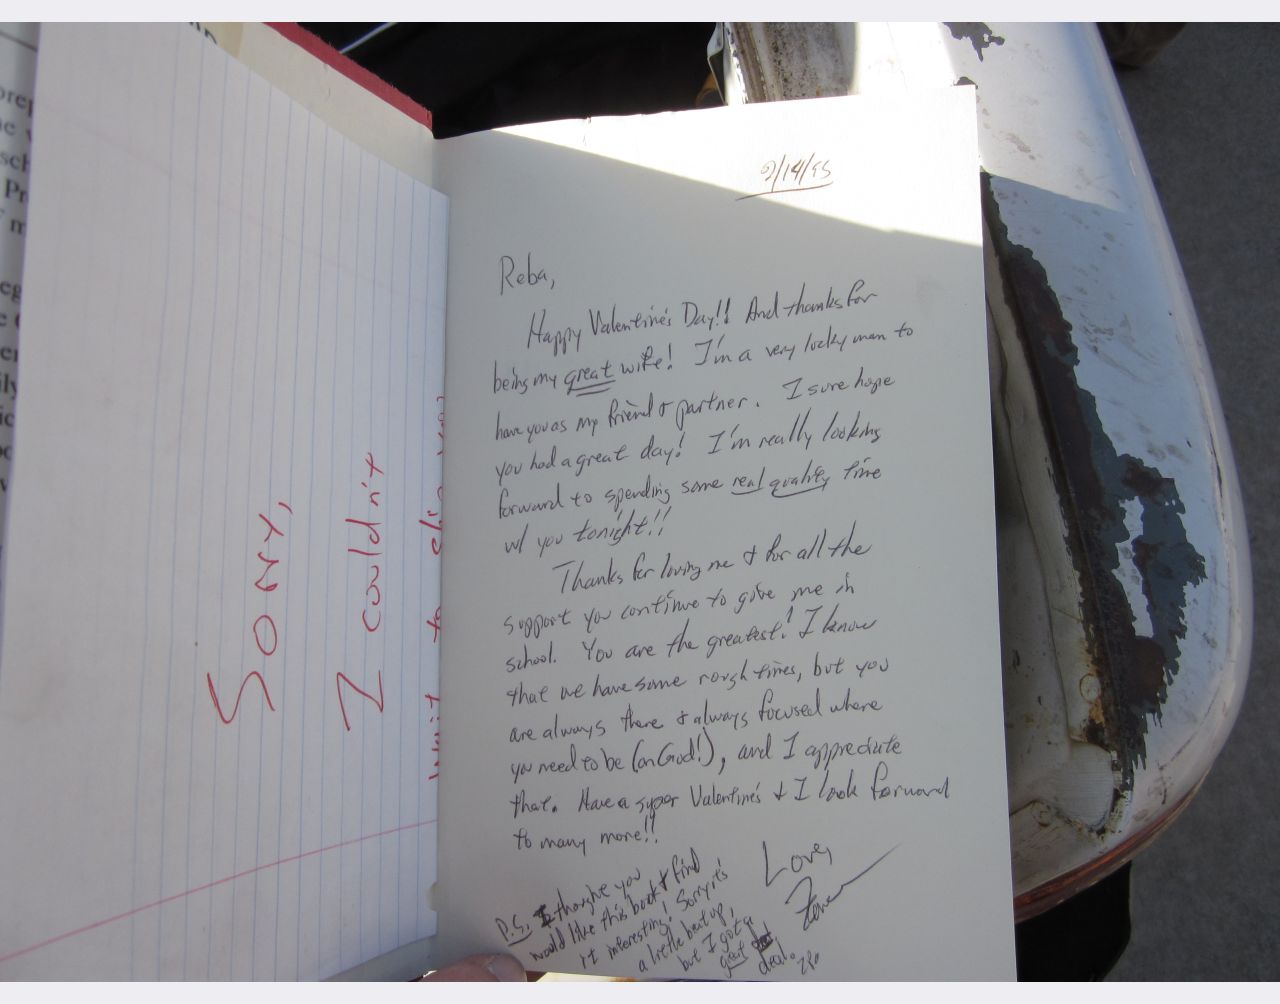 Sorry,
I couldn't
wait to
2/14/95
Reba,
Happy Valentine's Day!! And thanks for
being my great wife! I'm a very lucky man to
have you as my friend & partner. I sure hope
you had a great day! I'm really looking
forward to spending some real quality time
w/ you tonight!!
Thanks for loving me & for all the
support you continue to give me in
school. You are the greatest! I know
that we have some rough times, but you
are always there & always focused where
you need to be (on God!), and I appreciate
that. Have a super Valentine's & I look forward
to many more!!
Love,
P.S. I thought you
would like this book & find
it interesting! Sorry it's
a little beat up,
but I got a
great
deal.